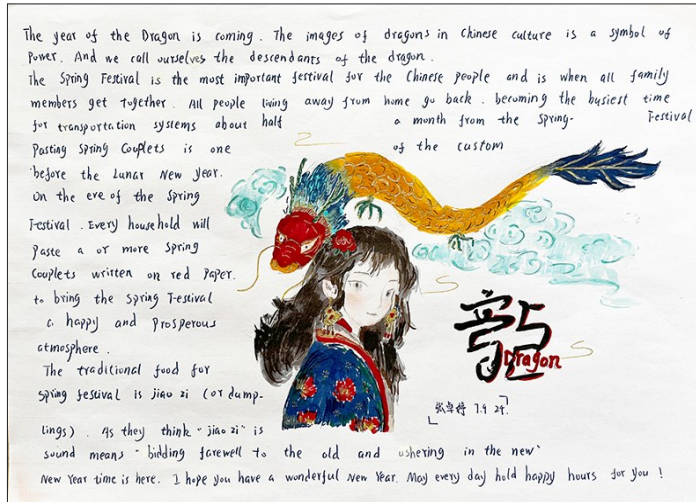 The year of the Dragon is coming. The images of dragons in Chinese culture is a symbol of
Power. And we call ourselves the descendants of the dragon.
The Spring Festival is the most important festival for the Chinese people and is when all family
members get together. All people living away from home go back. becoming the busiest time
for transportation systems about half a month from the Spring- Festival
Pasting Spring Couplets is one of the custom
before the Lunar New Year.
On the eve of the Spring
Festival. Every household will
Paste a or more Spring
Couplets written on red Paper.
to bring the Spring Festival
a happy and Prosperous
atmosphere.
The traditional food for
spring festival is jiao zi (or dump-
lings). As they think "jiao zi" is
sound means "bidding farewell to the old and ushering in the new"
New Year time is here. I hope you have a wonderful New Year. May every day hold happy hours for you!
龍
Dragon
7.9 29.